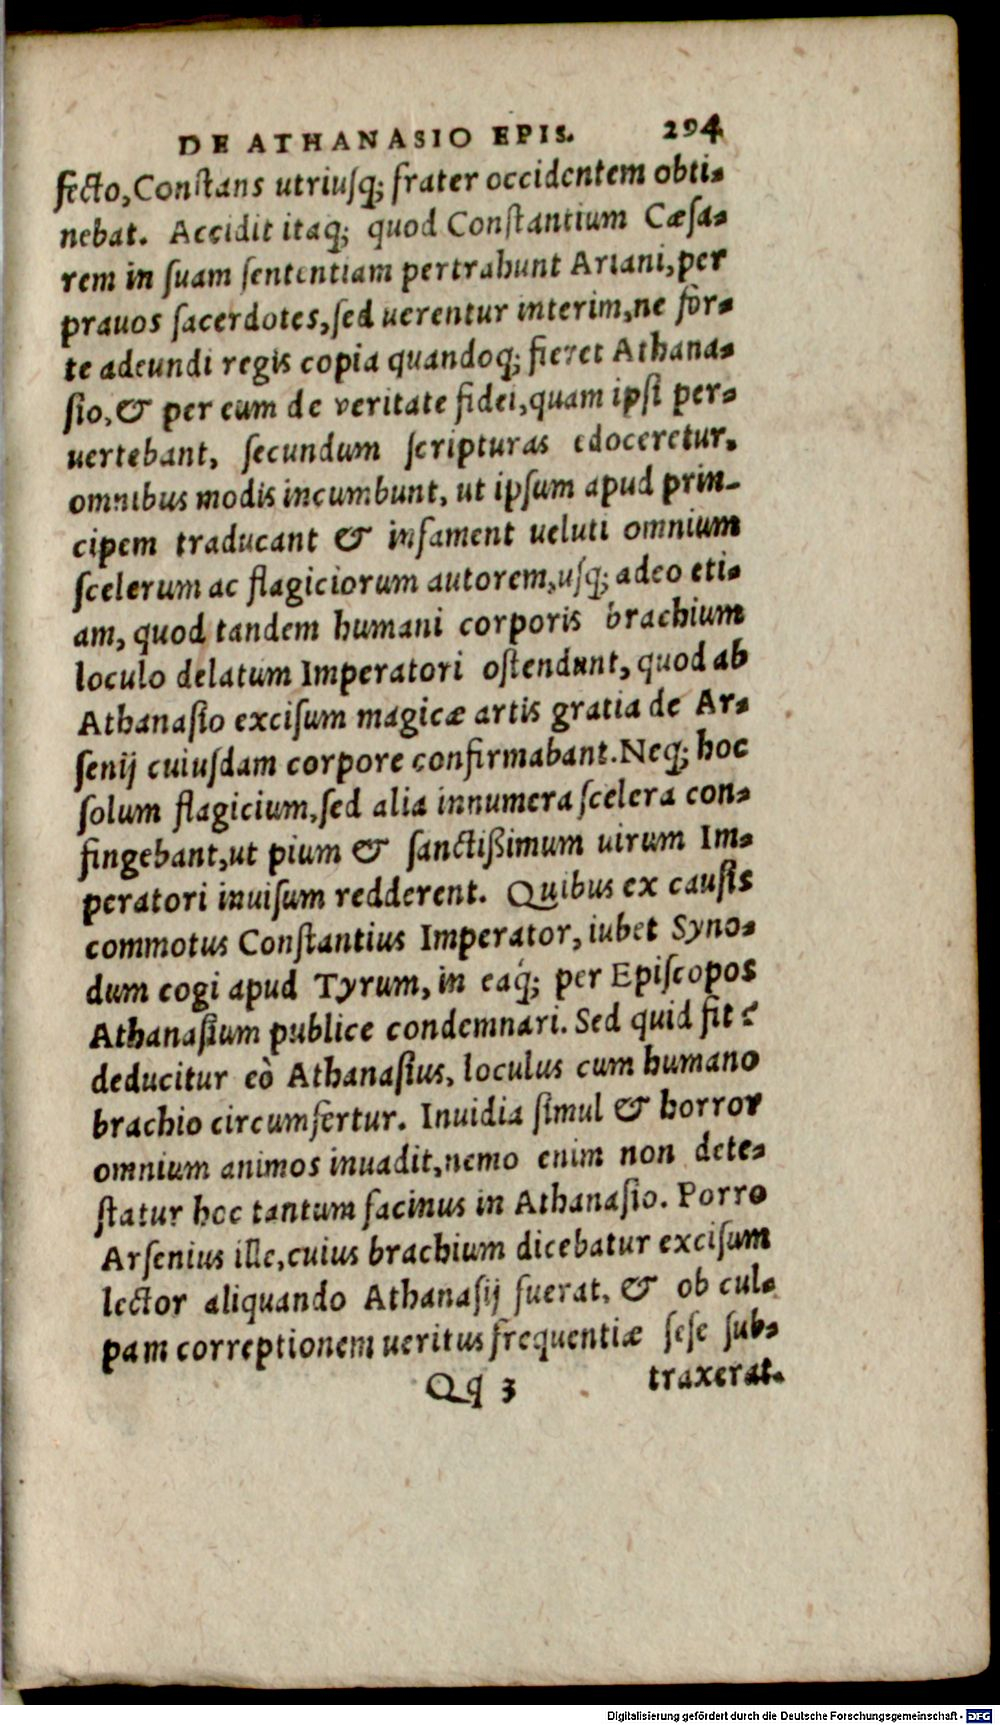 DE ATHANASIO EPIS. 294
fecto, Conſtans utriuſq; frater occidentem obti-
nebat. Accidit itaq; quod Conſtantium Cæſa-
rem in ſuam ſententiam pertrahunt Ariani, per
prauos ſacerdotes, ſed uerentur interim, ne for-
te adeundi regis copia quandoq; fieret Athana-
ſio, & per eum de veritate fidei, quam ipſi per-
uertebant, ſecundum ſcripturas edoceretur.
omnibus modis incumbunt, ut ipſum apud prin-
cipem traducant & infament ueluti omnium
ſcelerum ac flagiciorum autorem, uſq; adeo eti-
am, quod tandem humani corporis brachium
loculo delatum Imperatori oſtendunt, quod ab
Athanaſio exciſum magicæ artis gratia de Ar-
ſenij cuiuſdam corpore confirmabant. Neq; hoc
ſolum flagicium, ſed alia innumera ſcelera con-
fingebant, ut pium & ſanctißimum uirum Im-
peratori inuiſum redderent. Quibus ex cauſis
commotus Conſtantius Imperator, iubet Syno-
dum cogi apud Tyrum, in eaq́; per Epiſcopos
Athanaſium publice condemnari. Sed quid fit?
deducitur eò Athanaſius, loculus cum humano
brachio circumfertur. Inuidia ſimul & horror
omnium animos inuadit, nemo enim non dete-
ſtatur hoc tantum facinus in Athanaſio. Porro
Arſenius ille, cuius brachium dicebatur exciſum
lector aliquando Athanaſij fuerat, & ob cul-
pam correptionem ueritus frequentiæ ſeſe ſub-
Qq 3 traxerat.
Digitalisierung gefördert durch die Deutsche Forschungsgemeinschaft - DFG